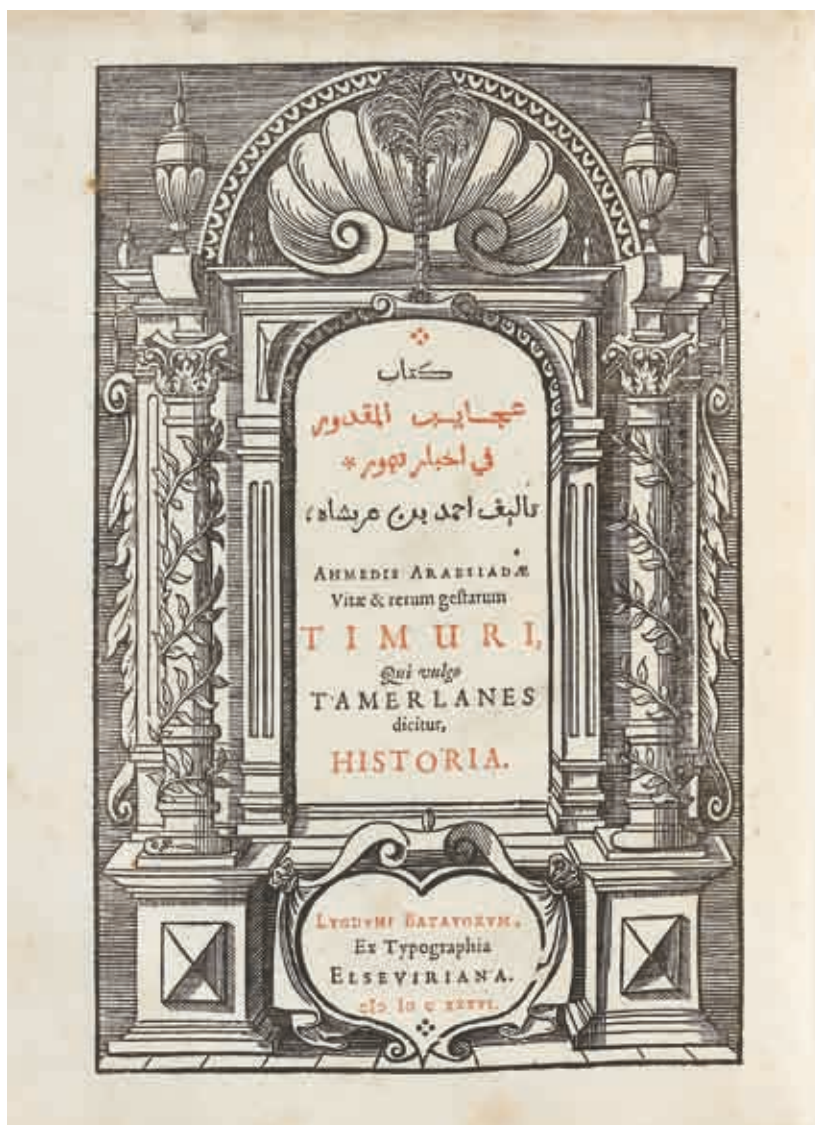 كتاب
عجايب المقدور
في اخبار تيمور *
تاليف احمد بن عربشاه ؛
AHMEDIS ARABSIADÆ
Vitæ & rerum gestarum
TIMURI,
Qui vulgo
TAMERLANES
dicitur,
HISTORIA.
LVGDVNI BATAVORVM,
Ex Typographia
ELSEVIRIANA.
cIↃ IↃ C XXXVI.